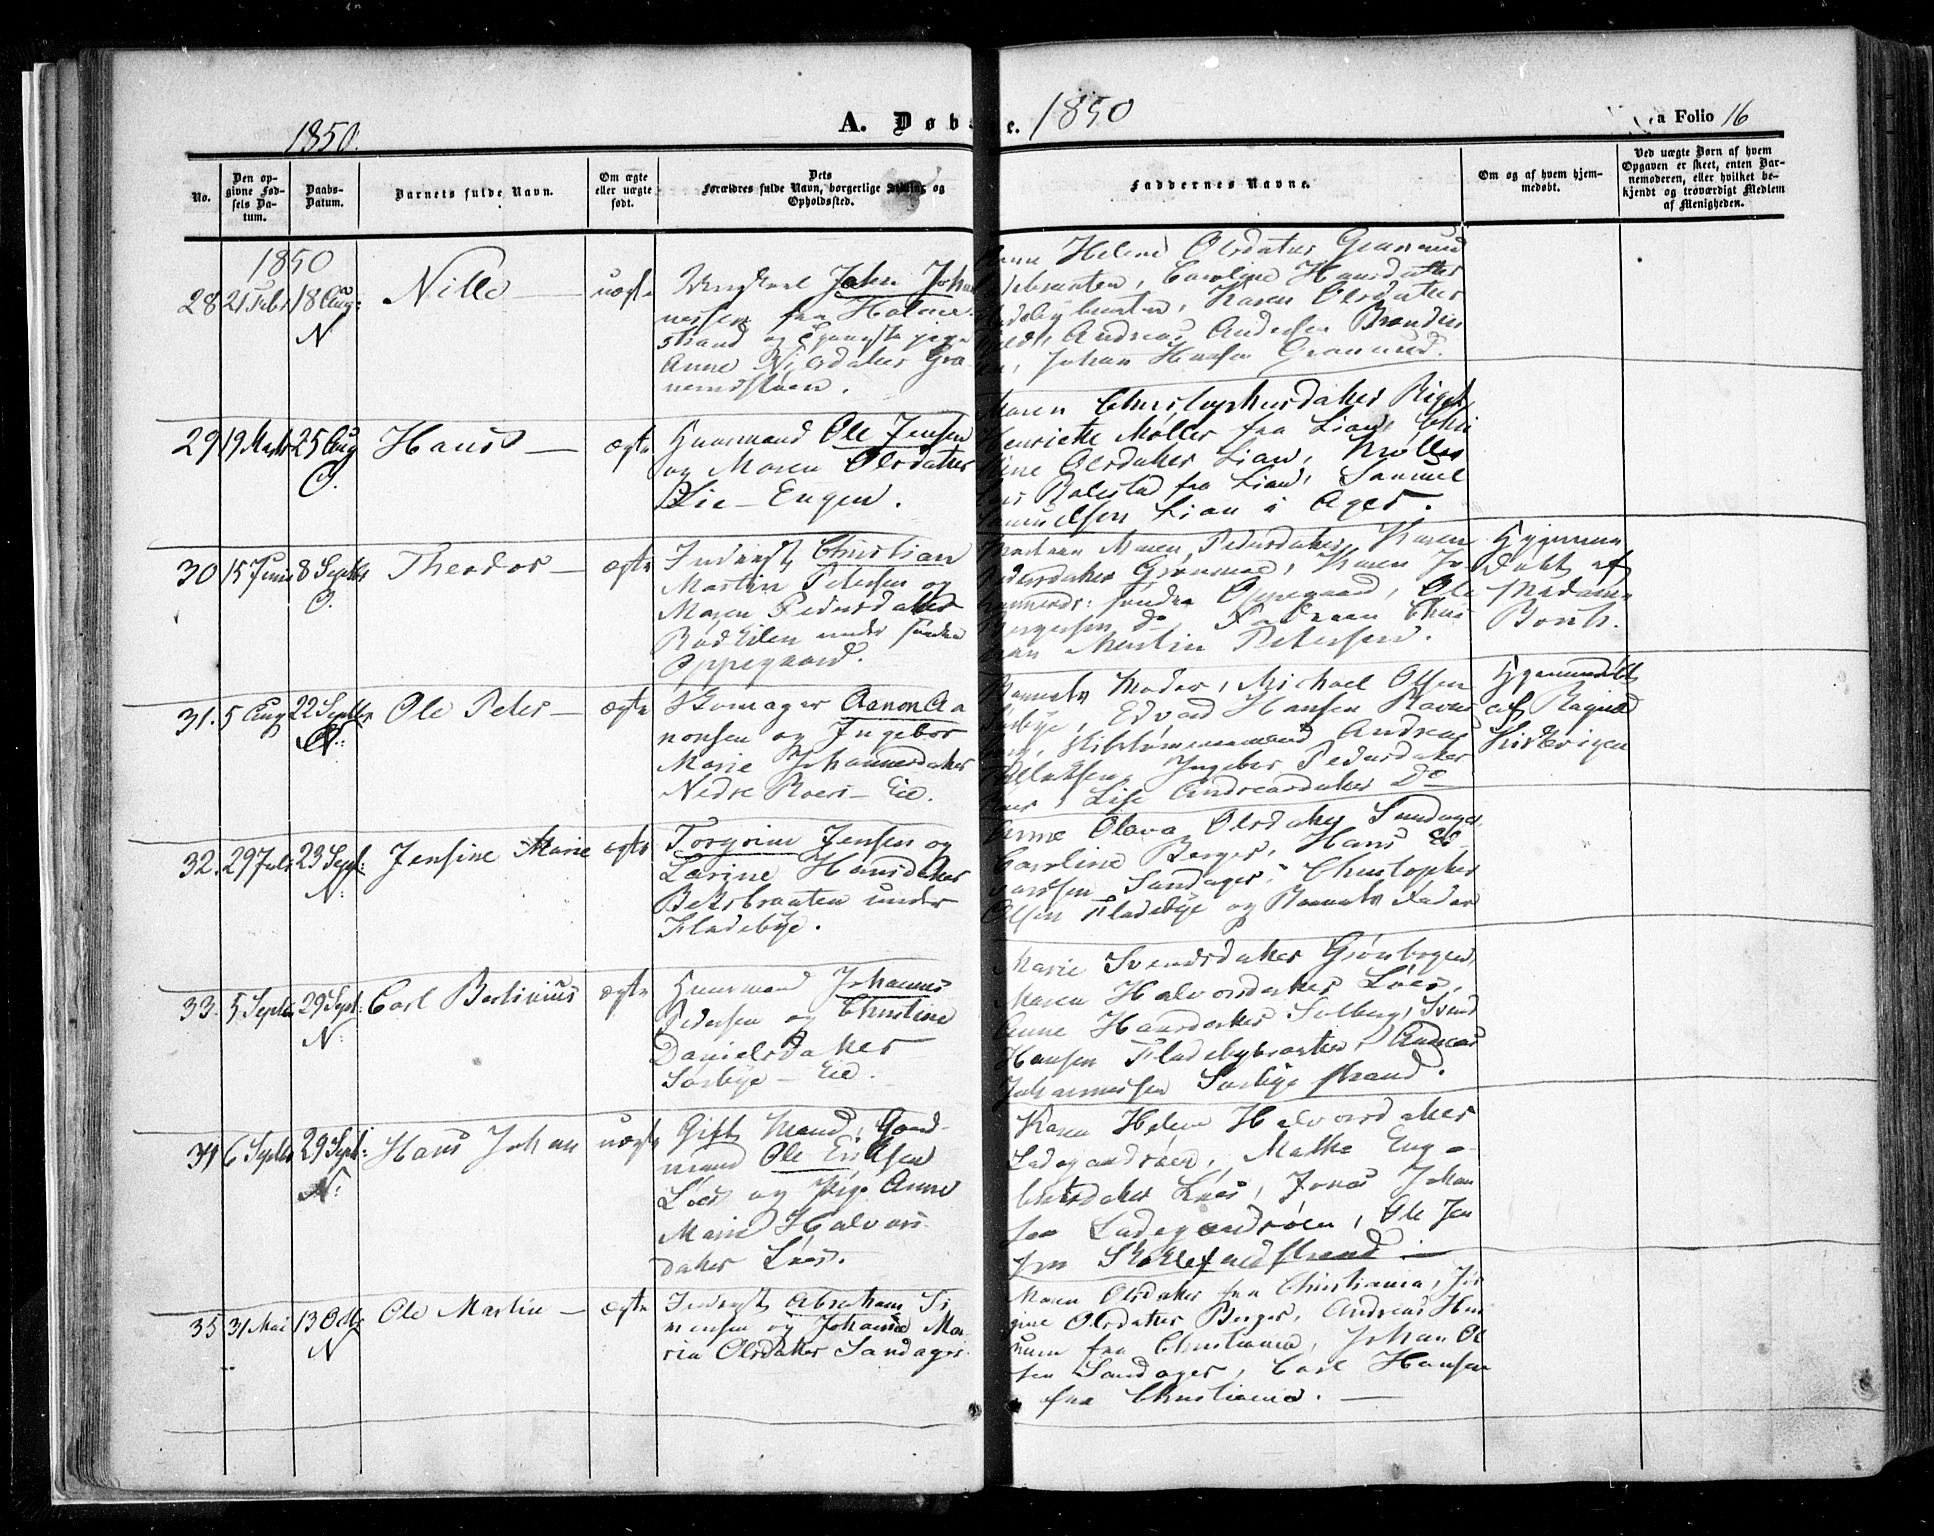 1850.
A. Døb
e. 1850
a Folio 16
No.
Den op-
givne Fød-
sels Da-
tum.
Daabs-
Datum.
Barnets fulde Navn.
Om ægte
eller uægte
født.
Dets
Forældres fulde Navn, borgerlige Stilling og
Opholdssted.
Faddernes Navne.
Om og af hvem hjem-
medøbt.
Ved uægte Børn af hvem
Opgaven er skeet, enten Bar-
nemoderen, eller hvilket be-
kjendt og troværdigt Medlem
af Menigheden.
1850
28 21 Febr 18 Aug: N
Nille —
uægte
Ungkarl John Joha
nessen fra Holme-
strand og Pige
Anne Nilsdatter Gra-
Helene Olsdatter Granerud
braaten, Caroline Hansdatter
bybraaten, Karen Olsdatter
Andreas Andersen
Johan Hansen Granerud.
29 19 Marts 25 Aug
Hans —
ægte
Huusmand Ole Jensen
og Maren Olsdatter
Lie-Engen.
Maren Christophersdatter
Henriette Møller fra Lian,
Olsdatter Lian, Møller
Rolestad fra Lian, Samuel
Samuelsen Lian i Ager.
30 15 Juni 8 Septbr
Theodor —
ægte
Inderst Christian
Martin Petersen og
Maren Pedersdatter
under søndre
Oppegaard.
Madam Maren Pedersdatter, Karen
Pedersdatter Granerud, Karen Jo
hannesd: søndre Oppegaard, Ole
Do, Faderen Chris
tian Martin Petersen.
Hjemme
døbt af
Madame
31. 5 Aug 22 Septbr N:
Ole Peter —
ægte
Skomager Aanon Aa
nonsen og Ingebor
Marie Johannesdatter
Nedre Roer-Eie.
Barnets Moder, Michael Olsen
Edvard Hansen
Andreas
Ingebor Pedersdatter
Lise Andreasdatter Do
Hjemmedøbt
af Ragnild
32. 29 Juli 29 Sept: N:
Jensine Marie
ægte
Torgrim Jensen og
Larine Hansdatter
Bekbraaten under
Fladebye.
Anne Olava Olsdatter Sandager
Caroline Berger, Hans
Sandager, Christopher
Olsen Fladebye og Barnets Fader
33. 5 Septbr 29 Sept: N:
Carl Bertinius
ægte
Huusmand Johannes
Pedersen og Christine
Danielsdatter
Sørbye-Eie.
Marie Svendsdatter
Maren Halvorsdatter Løes,
Anne Hansdatter Solberg, Svend
Hansen Fladebybraaten, Andreas
Johannessen Sørbye strand.
34 6 Septbr 29 Sept: N:
Hans Johan
uægte
Gift Mand, Gaard-
mand Ole Eriksen
Løes og Pige Anne
Marie Halvors
datter Løes.
Karen Helene Halvorsdatter
Ladegaardsøen, Mathe Eng-
bretsdatter Løes, Jonas Johan
sen Ladegaardsøen, Ole Jen
sen strand —
35 31 Mai 13 Octbr N
Ole Martin —
ægte
Inderst Abraham Si
mensen og Johanne Ma-
ria Olsdatter Sandager.
Maren Olsdatter fra Christiania, Jør
gine Olsdatter Berger, Andreas Han
sen fra Christiania, Johan Ol
sen Sandager, Carl Hansen
fra Christiania. —